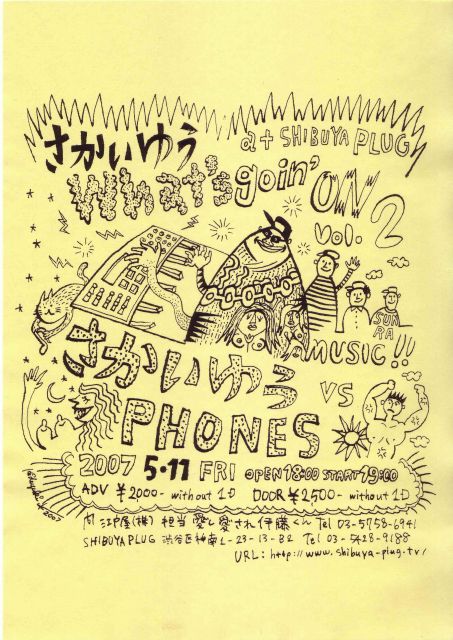 さかいゆう at SHIBUYA PLUG
What's goin' ON 2
vol.
SUN RA
MUSIC!!
さかいゆう
VS
PHONES
2007 5・11 FRI OPEN 18:00 START 19:00
ADV ¥2000- without 1D DOOR ¥2,500- without 1D
江戸屋(株) 担当 愛し愛され伊藤くん Tel 03-5758-6941
SHIBUYA PLUG 渋谷区神南1-23-13-B2 Tel 03-5428-9188
URL: http://www.shibuya-plug.tv/